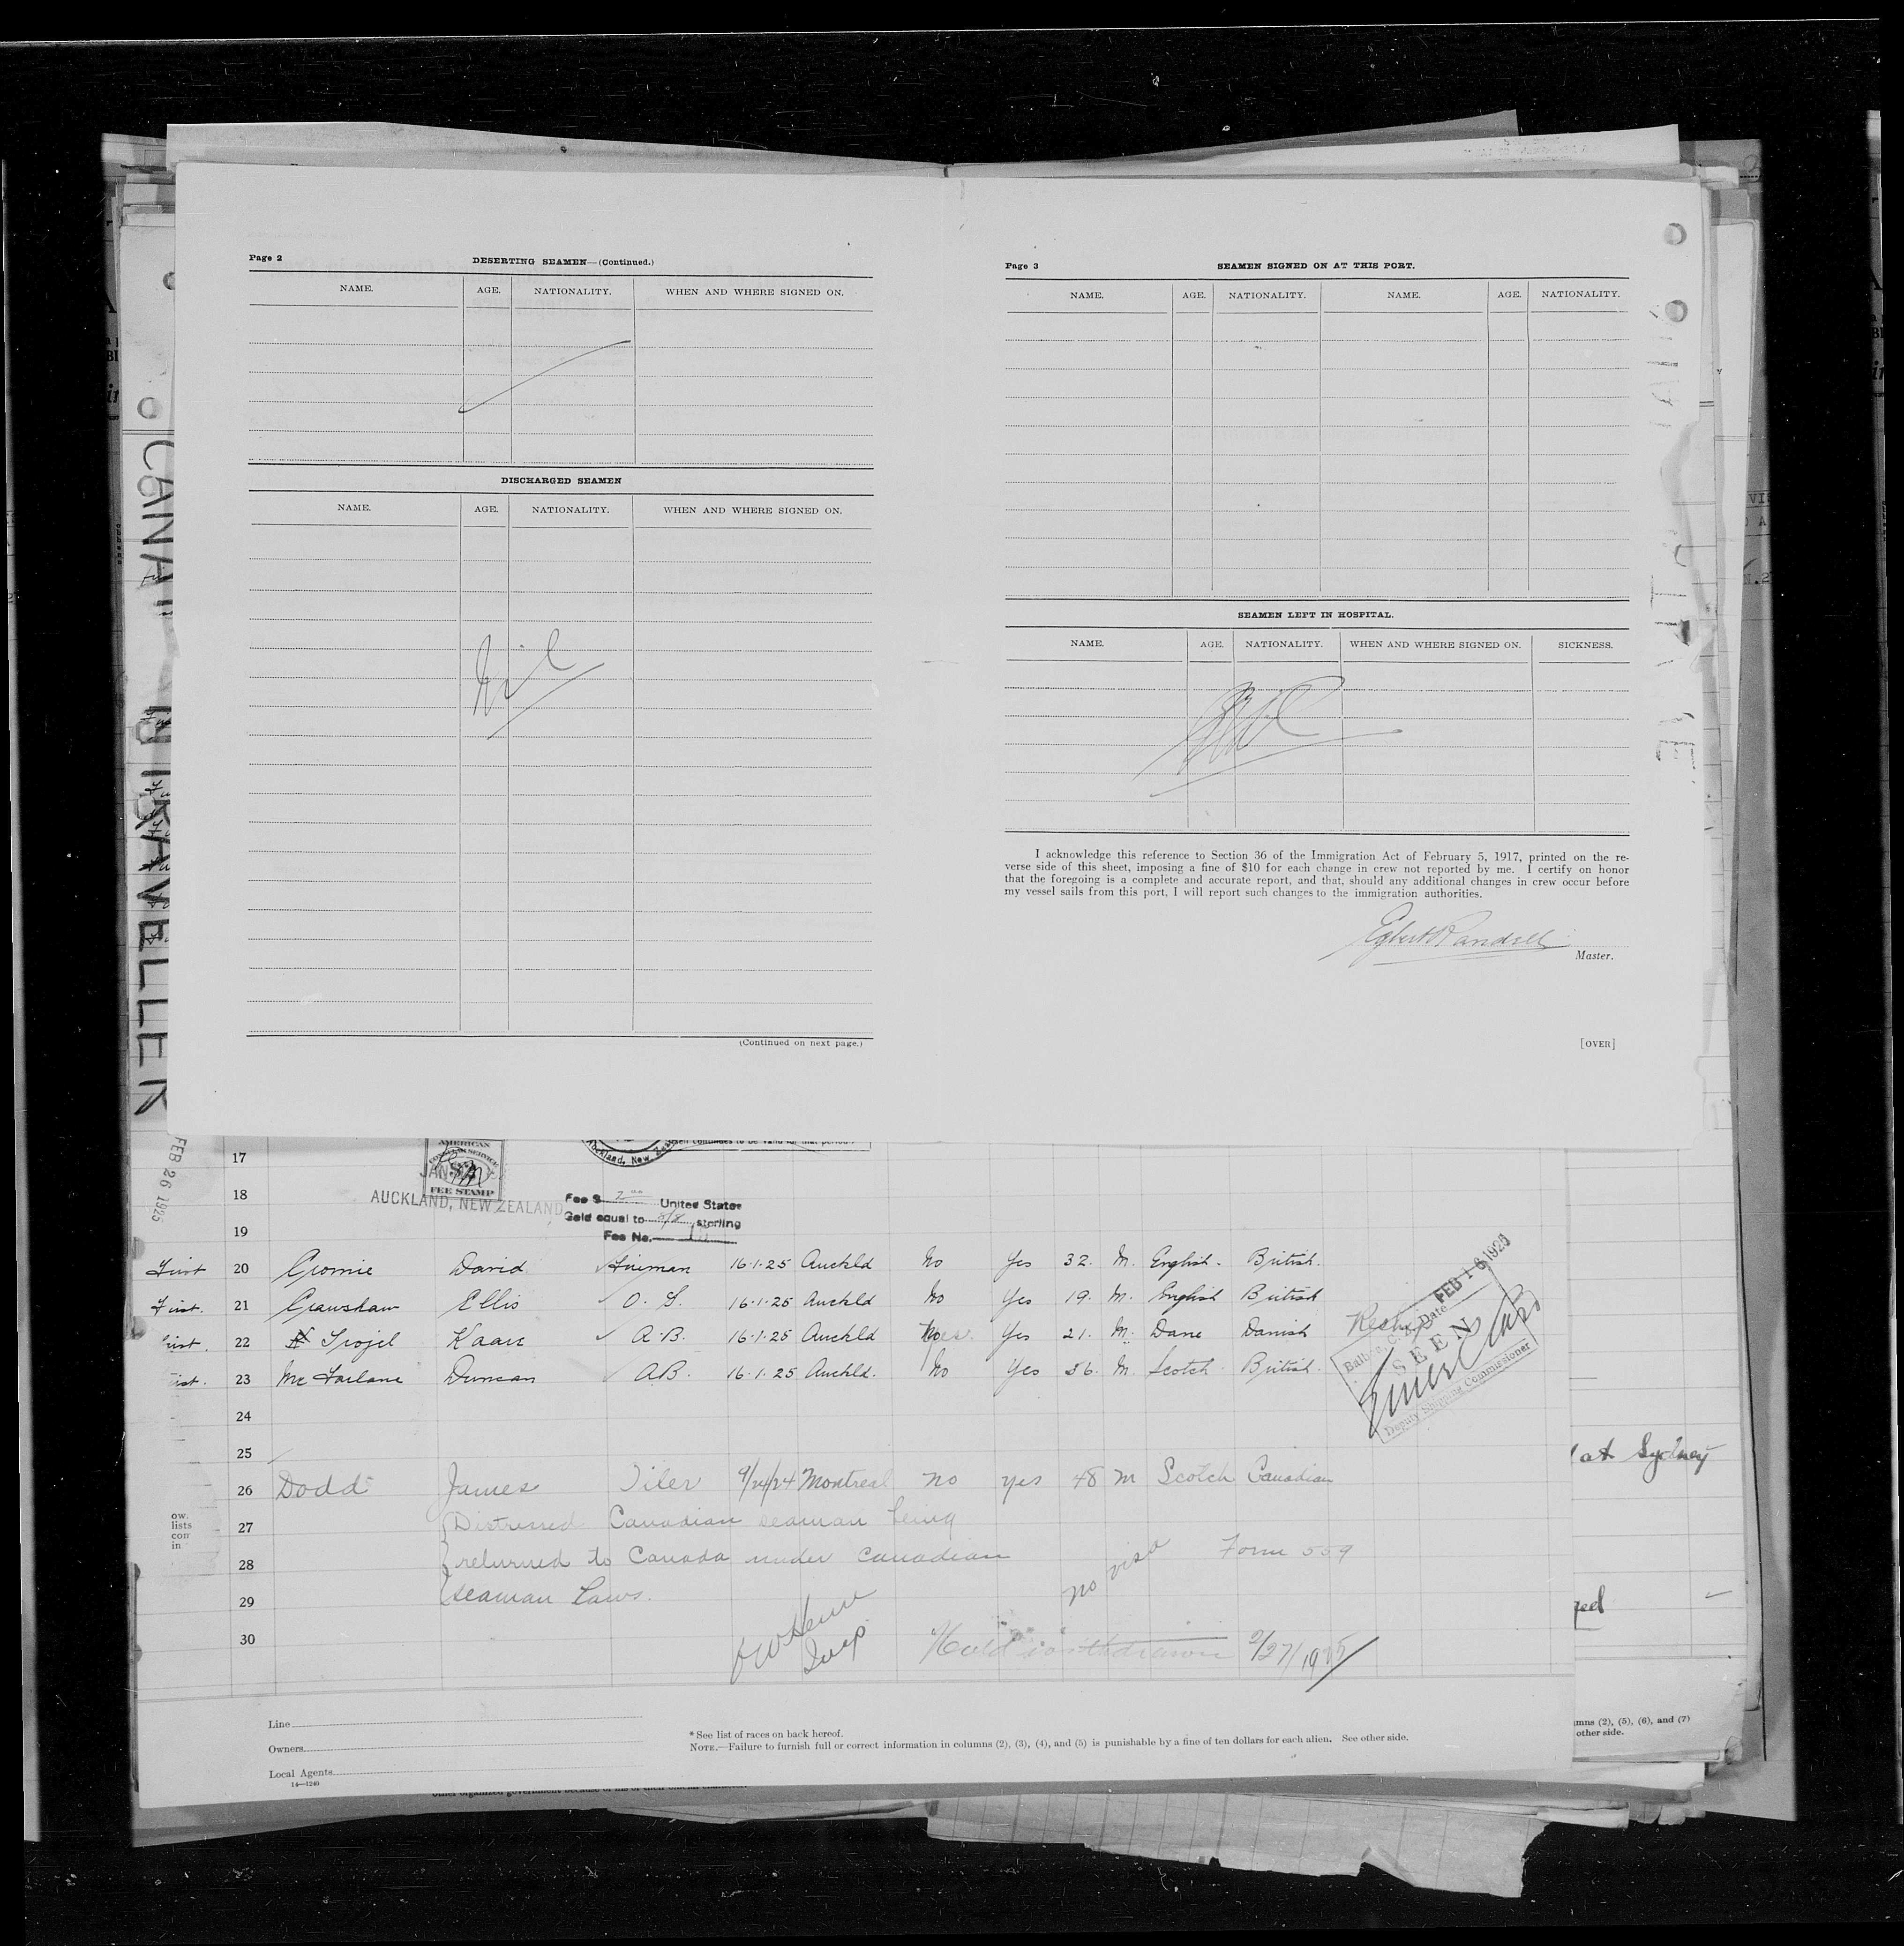 Page 2
DESERTING SEAMEN—(Continued.)
NAME. AGE. NATIONALITY. WHEN AND WHERE SIGNED ON.
DISCHARGED SEAMEN
NAME. AGE. NATIONALITY. WHEN AND WHERE SIGNED ON.
Nil
(Continued on next page.)
Page 3
SEAMEN SIGNED ON AT THIS PORT.
NAME. AGE. NATIONALITY. NAME. AGE. NATIONALITY.
SEAMEN LEFT IN HOSPITAL.
NAME. AGE. NATIONALITY. WHEN AND WHERE SIGNED ON. SICKNESS.
I acknowledge this reference to Section 36 of the Immigration Act of February 5, 1917, printed on the re-
verse side of this sheet, imposing a fine of $10 for each change in crew not reported by me. I certify on honor
that the foregoing is a complete and accurate report, and that, should any additional changes in crew occur before
my vessel sails from this port, I will report such changes to the immigration authorities.
Egbert Randell
Master.
[OVER]
TRAVELLER
FEB 26 1925
AMERICAN
FEE STAMP
JAN
AUCKLAND, NEW ZEALAND
Auckland, New Zea
Fee $ 2 United States
Gold equal to 8/8 sterling
Fee No.
17
18
19
First 20 Cromie David Fireman 16·1·25 Auckld No Yes 32. M. English. British.
First. 21 Crawshaw Ellis O. S. 16·1·25 Auckld No Yes 19. M. English British
22 Trojel Kaare A.B. 16·1·25 Auckld Yes 21. M. Dane Danish
23 Mc Farlane Duncan A.B. 16·1·25 Auckld. No Yes 36. M. Scotch British.
FEB 16 1925
Date
SEEN
Deputy Shipping Commissioner
24
25
26 Dodd James Oiler 9/24/24 Montreal no yes 48 m Scotch Canadian
27 Distressed Canadian seaman being
28 returned to Canada under Canadian
no visa Form 559
29 seaman Laws.
30 Hold withdrawn 2/27/1925
at Sydney
Line
Owners
Local Agents
14—1240
* See list of races on back hereof.
NOTE.—Failure to furnish full or correct information in columns (2), (3), (4), and (5) is punishable by a fine of ten dollars for each alien. See other side.
(2), (5), (6), and (7)
other side.